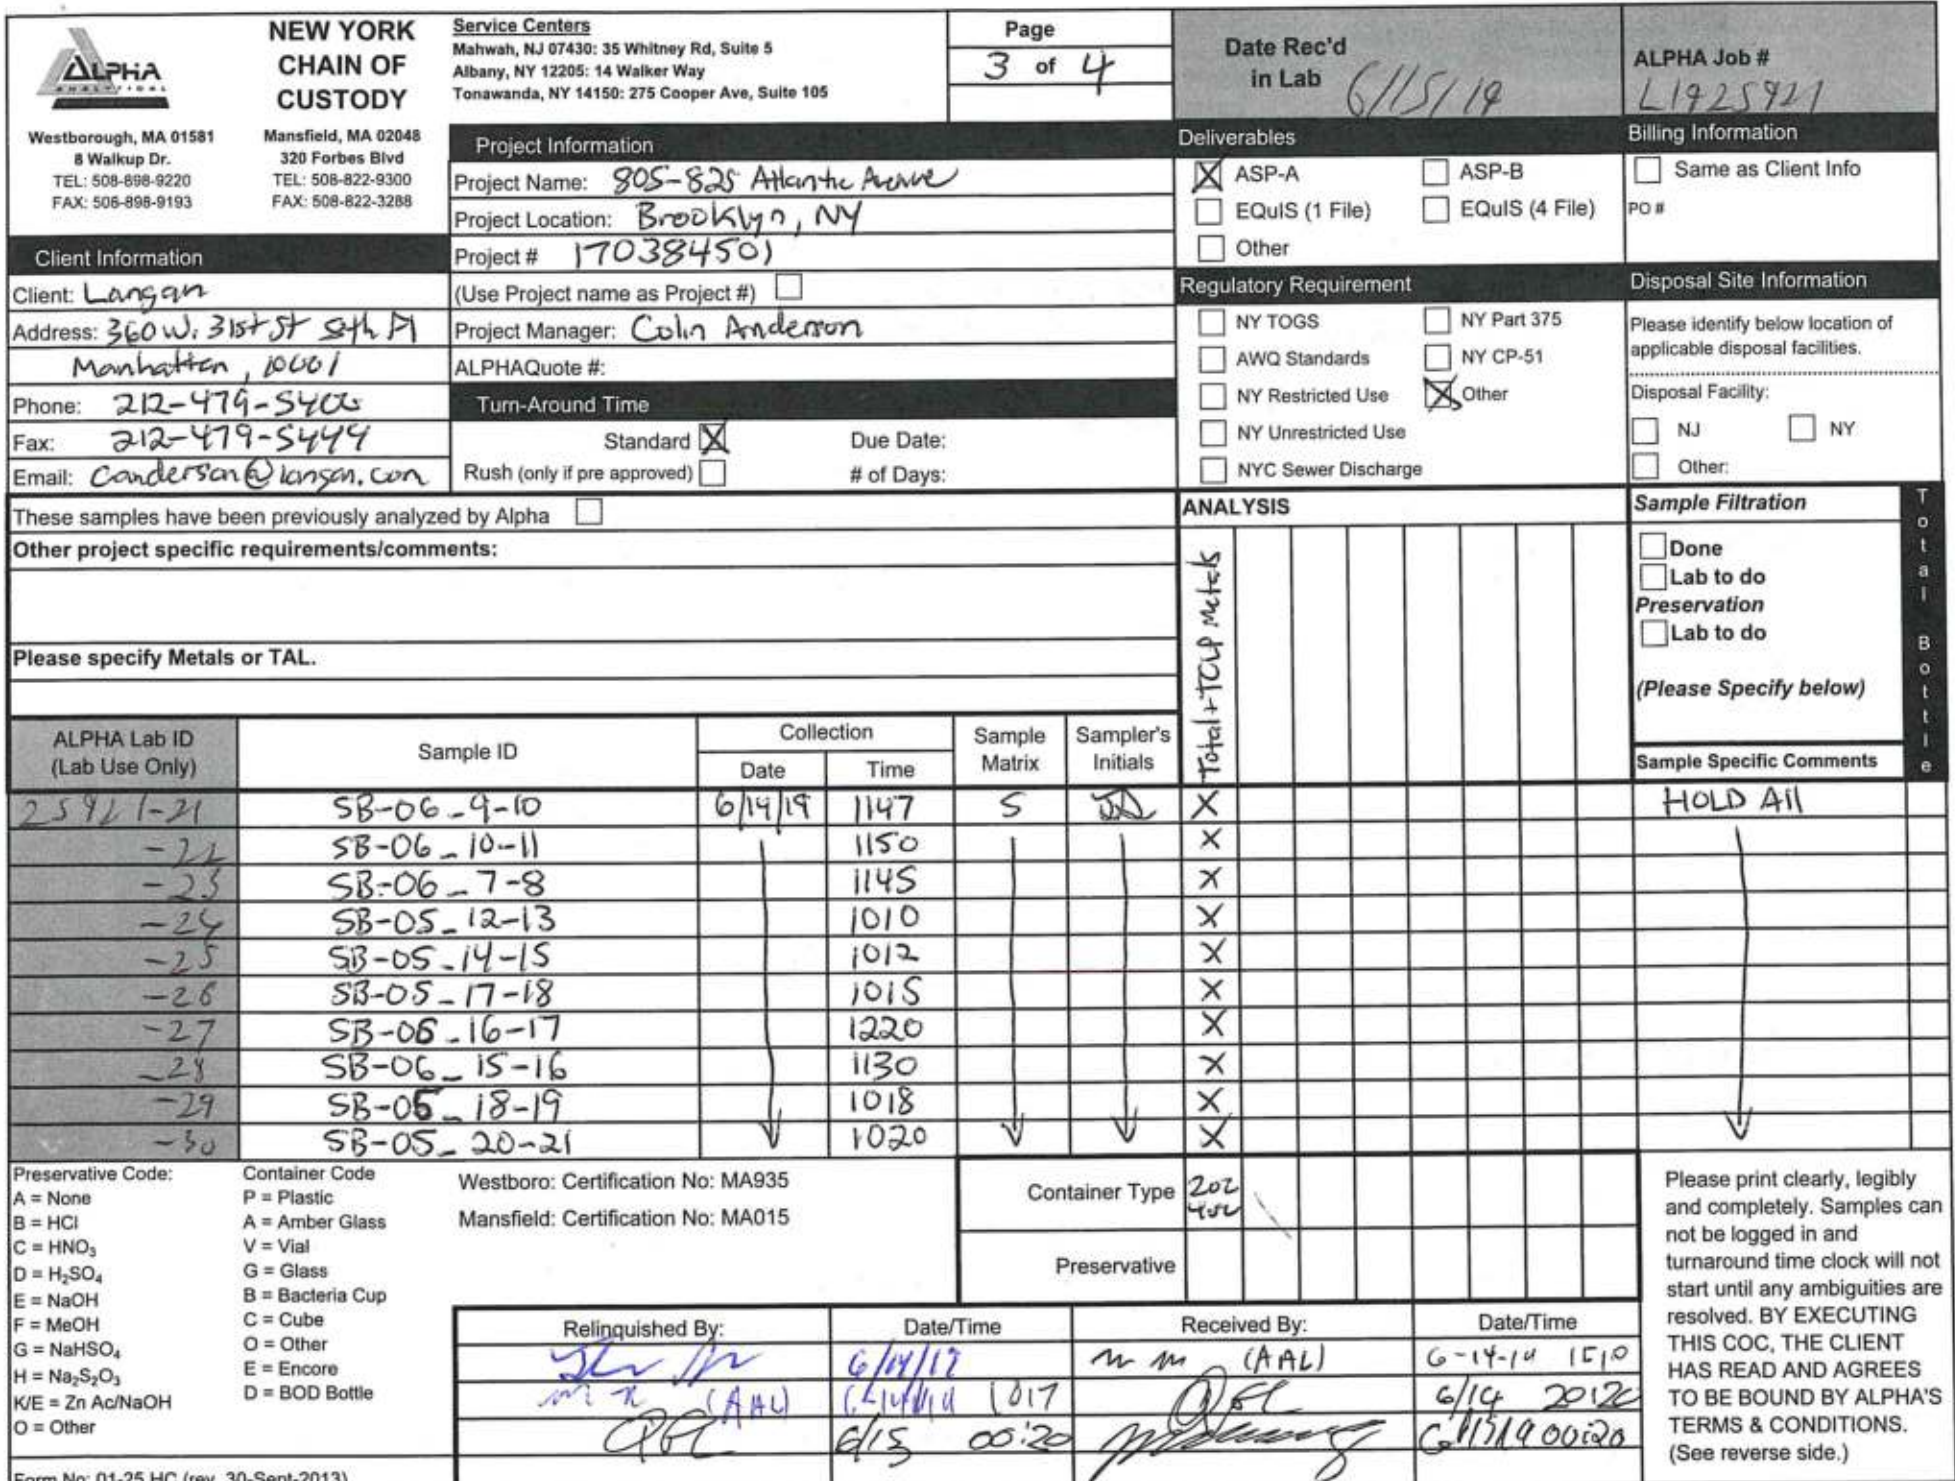 ALPHA
ANALYTICAL
Westborough, MA 01581
8 Walkup Dr.
TEL: 508-898-9220
FAX: 508-898-9193
NEW YORK
CHAIN OF
CUSTODY
Mansfield, MA 02048
320 Forbes Blvd
TEL: 508-822-9300
FAX: 508-822-3288
Service Centers
Mahwah, NJ 07430: 35 Whitney Rd, Suite 5
Albany, NY 12205: 14 Walker Way
Tonawanda, NY 14150: 275 Cooper Ave, Suite 105
Page
3 of 4
Date Rec'd
in Lab 6/15/19
ALPHA Job #
L1925921
Client Information
Client: Langan
Address: 360 W. 31st St 8th Fl
Manhattan, 10001
Phone: 212-479-5400
Fax: 212-479-5444
Email: Canderson@langan.com
Project Information
Project Name: 805-825 Atlantic Avenue
Project Location: Brooklyn, NY
Project # 170384501
(Use Project name as Project #)
Project Manager: Colin Anderson
ALPHAQuote #:
Turn-Around Time
Standard X Due Date:
Rush (only if pre approved) # of Days:
Deliverables
X ASP-A ASP-B
EQuIS (1 File) EQuIS (4 File)
Other
Regulatory Requirement
NY TOGS NY Part 375
AWQ Standards NY CP-51
NY Restricted Use X Other
NY Unrestricted Use
NYC Sewer Discharge
Billing Information
Same as Client Info
PO #
Disposal Site Information
Please identify below location of
applicable disposal facilities.
Disposal Facility:
NJ NY
Other:
These samples have been previously analyzed by Alpha
Other project specific requirements/comments:
Please specify Metals or TAL.
ANALYSIS
Total + TCLP Metals
Sample Filtration
Done
Lab to do
Preservation
Lab to do
(Please Specify below)
Total Bottle
ALPHA Lab ID
(Lab Use Only)
Sample ID
Collection
Date Time
Sample
Matrix
Sampler's
Initials
Sample Specific Comments
25921-21 SB-06_9-10 6/14/19 1147 S X HOLD All
-22 SB-06_10-11 1150 X
-23 SB-06_7-8 1145 X
-24 SB-05_12-13 1010 X
-25 SB-05_14-15 1012 X
-26 SB-05_17-18 1015 X
-27 SB-06_16-17 1220 X
-28 SB-06_15-16 1130 X
-29 SB-05_18-19 1018 X
-30 SB-05_20-21 1020 X
Preservative Code:
A = None
B = HCl
C = HNO₃
D = H₂SO₄
E = NaOH
F = MeOH
G = NaHSO₄
H = Na₂S₂O₃
K/E = Zn Ac/NaOH
O = Other
Container Code
P = Plastic
A = Amber Glass
V = Vial
G = Glass
B = Bacteria Cup
C = Cube
O = Other
E = Encore
D = BOD Bottle
Westboro: Certification No: MA935
Mansfield: Certification No: MA015
Container Type 2oz
4oz
Preservative
Relinquished By: Date/Time Received By: Date/Time
6/14/19 (AAL) 1510
(AAL) 6/14
6/15 00:20 00:20
Please print clearly, legibly
and completely. Samples can
not be logged in and
turnaround time clock will not
start until any ambiguities are
resolved. BY EXECUTING
THIS COC, THE CLIENT
HAS READ AND AGREES
TO BE BOUND BY ALPHA'S
TERMS & CONDITIONS.
(See reverse side.)
Form No: 01-25 HC (rev. 30-Sept-2013)